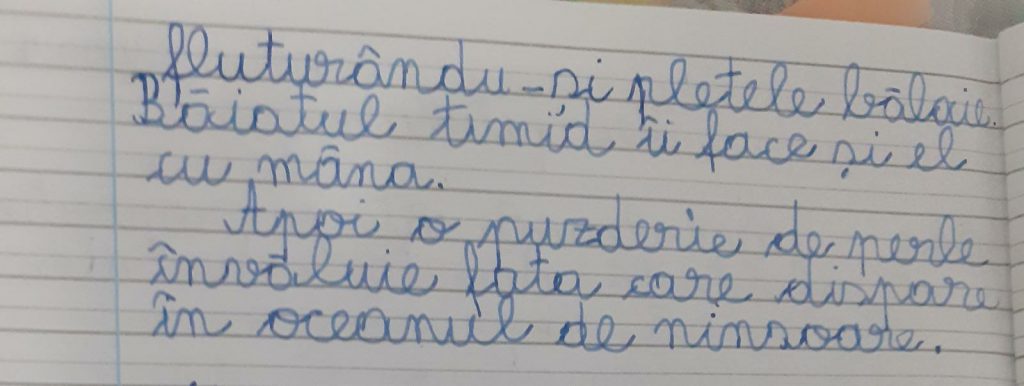 fluturându-și pletele bălaie.
Băiatul timid îi face și el
cu mâna.
Apoi o puzderie de perle
învăluie fata care dispare
în oceanul de ninsoare.